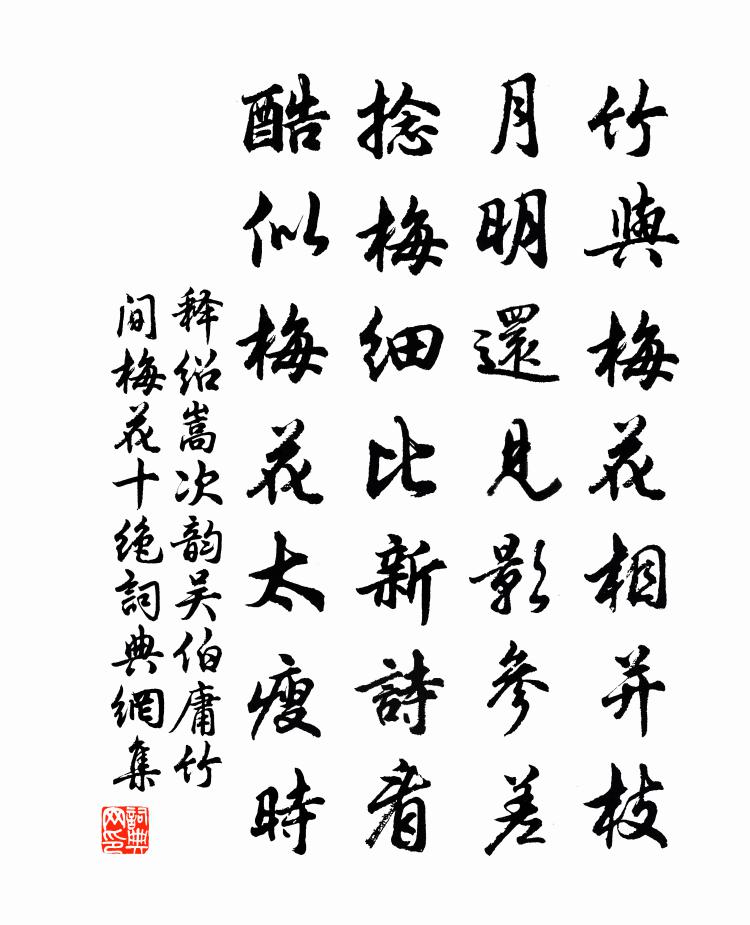 竹與梅花相并枝
月明還見影參差
捻梅細比新詩看
酷似梅花太瘦時
释绍嵩次韵吴伯庸竹
間梅花十絶詞典網集
詞典
网印